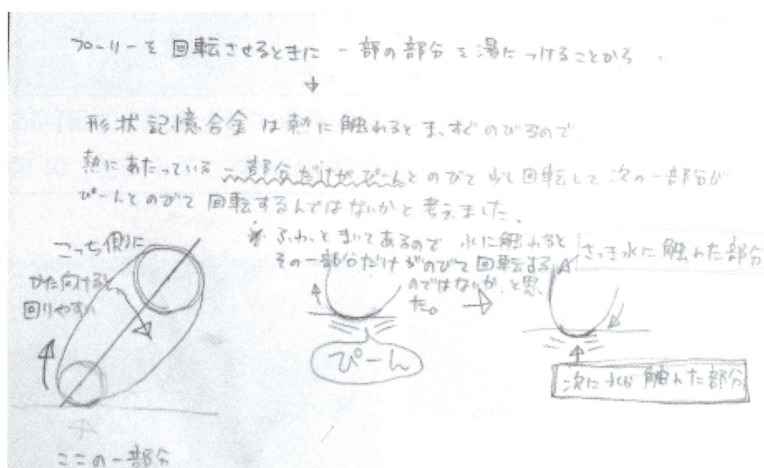 プーリーを回転させるときに一部の部分を湯につけることから
↓
形状記憶合金は熱に触れるとまっすぐのびるので
熱にあたっている一部分だけがぴーんとのびて少し回転して次の一部分が
ぴーんとのびて回転するんではないかと考えました。
※ふわっとまいてあるので水に触れると
その一部分だけがのびて回転する
のではないか、と思
た。
こっち側に
かた向けると
回りやすい
ここの一部分
ぴーん
さっき水に触れた部分
次に水が触れた部分